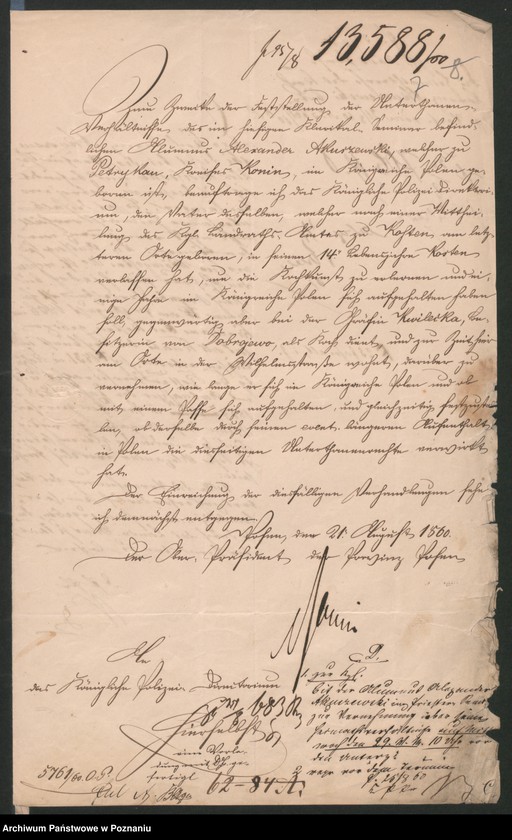 13,588/60
8.
7
Zum Zwecke der Feststellung der Unterthanen-
Verhältnisse des im hiesigen Klerikal-Seminar befind-
lichen Alumnus Alexander Akuszewski, welcher zu
Petrykau, Kreises Konin, im Königreiche Polen ge-
boren ist, beauftrage ich das Königliche Polizei-Direktori-
um, den Vater desselben, welcher nach einer Mitthei-
lung des Kgl. Landraths-Amtes zu Kosten, am letz-
teren Orte geboren, in seinem 14t Lebensjahre Kosten
verlassen hat, um die Kochkunst zu erlernen und ei-
nige Jahre im Königreiche Polen sich aufgehalten haben
soll, gegenwärtig aber bei der Gräfin Kwilecka, Be-
sitzerin von Dobrojewo, als Koch dient und zur Zeit hier
am Orte in der Wilhelmsstraße wohnt, darüber zu
vernehmen, wie lange er sich im Königreiche Polen und ob
mit einem Passe sich aufgehalten, und gleichzeitig festzustel-
len, ob derselbe durch seinen event. längeren Aufenthalt
in Polen die diesseitigen Unterthanenrechte verwirkt
hat.
Der Einreichung der diesfälligen Verhandlungen sehe
ich demnächst entgegen.
Posen, den 21. August 1860.
Der Ober Präsident der Provinz Posen
An
das Königliche Polizei Direktorium
hierselbst
5761/60 O.P.
62-84 A.
1. zur Vfg.
ist der Alumnus Alexander
zur Vernehmung über seine
den 29. d. M. 10 Uhr vor
den Unterz.
vor dem Termin
Archiwum Państwowe w Poznaniu